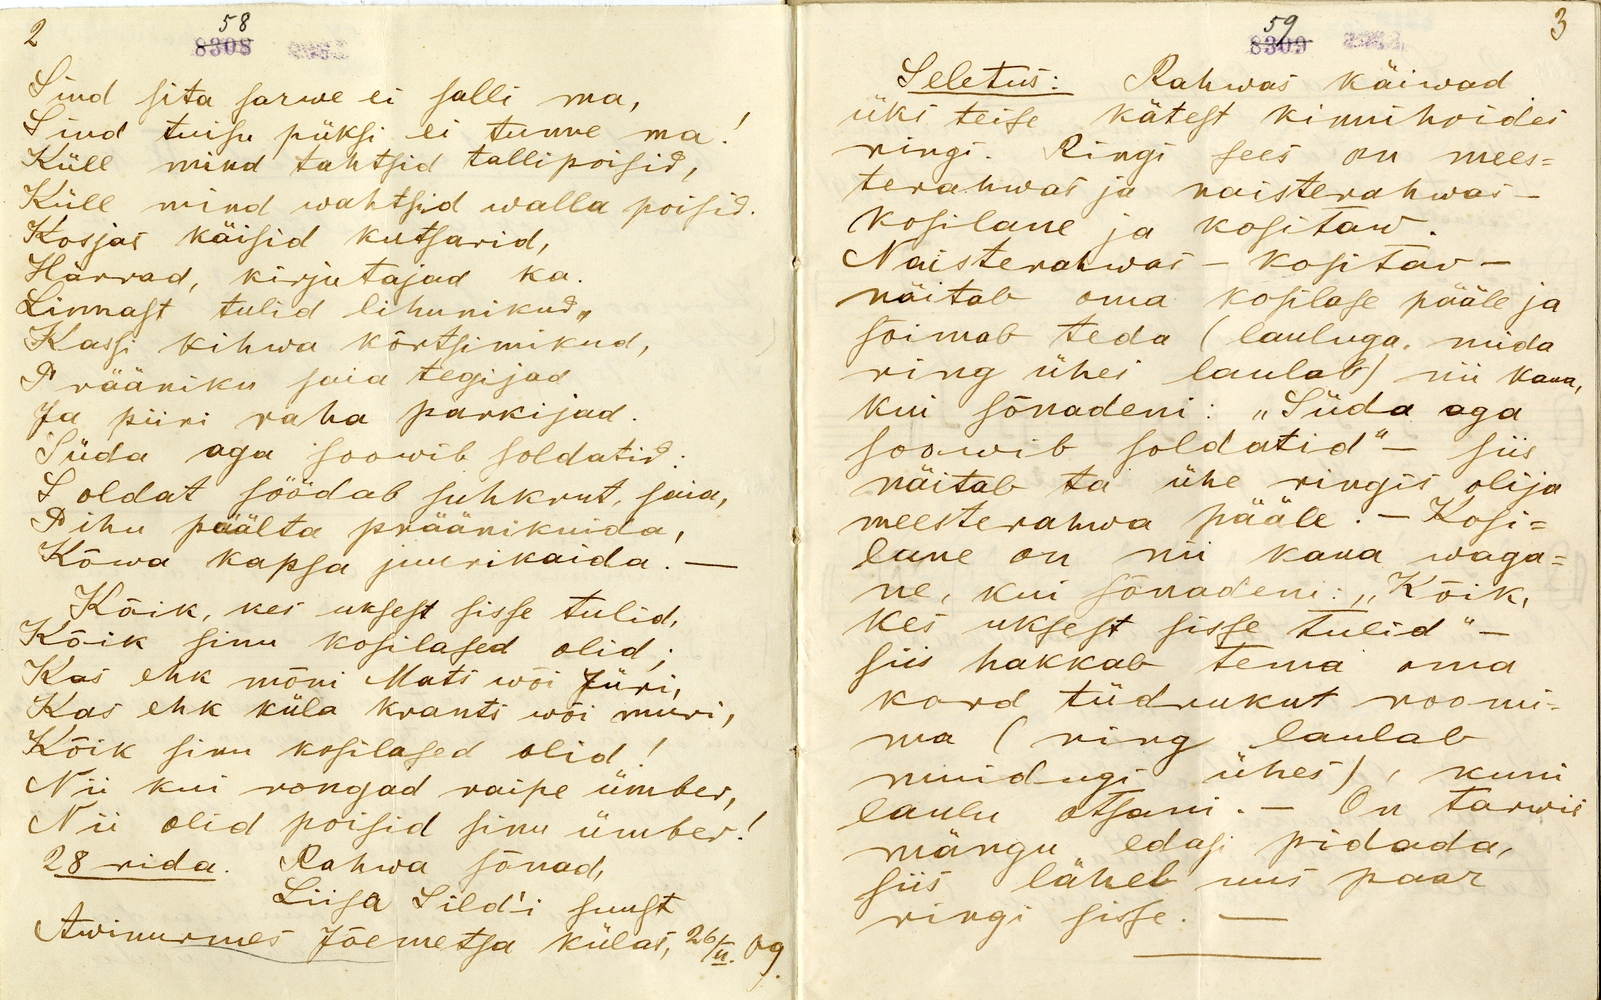 2
58
8308
Sind sita sarwe ei salli ma,
Sind tuisu püksi ei tunne ma!
Küll mind tahtsid tallipoisid,
Küll mind wahtsid walla poisid.
Kosjas käisid kutsarid,
Härrad, kirjutajad ka.
Linnast tulid lihunikud,
Kassi kihwa kõrtsimikud,
Prääniku saia tegijad
Ja piiri raha parkijad.
Süda aga soowib soldatid:
Soldat söödab suhkrut, saia,
Pihu päälta präänikuida,
Kõwa kapsa juurikaida. —
Kõik, kes uksest sisse tulid,
Kõik sinu kosilased olid;
Kas ehk mõni Mats wõi Jüri,
Kas ehk küla krants wõi muri,
Kõik sinu kosilased olid!
Nii kui rongad raipe ümber,
Nii olid poisid sinu ümber!
28 rida. Rahwa sõnad,
Liisa Sild'i suust
Awinurmes Jõemetsa külas, 26/II. 09.
59
8309
3
Seletus: Rahwas käiwad
üks teise kätest kinnihoides
ringi. Ringi sees on mees=
terahwas ja naisterahwas –
kosilane ja kositaw.
Naisterahwas – kositav –
näitab oma kosilase pääle ja
sõimab teda (lauluga, mida
ring ühes laulab) nii kaua,
kui sõnadeni: „Süda aga
soowib soldatid“ – siis
näitab ta ühe ringis olija
meesterahwa pääle. – Kosi=
lane on nii kaua waga=
ne, kui sõnadeni: „Kõik,
kes uksest sisse tulid“ –
siis hakkab tema oma
kord tüdrukut rooni=
ma (ring laulab
muidugi ühes), kuni
laulu otsani. – On tarwis
mängu edasi pidada,
siis läheb uus paar
ringi sisse. —